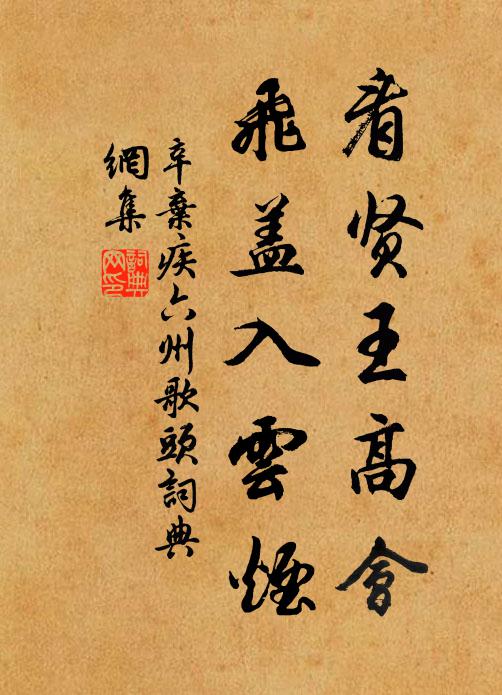 看贤王高會
飛盖入雲煙
辛棄疾六州歌頭詞典
網集
詞典
网印